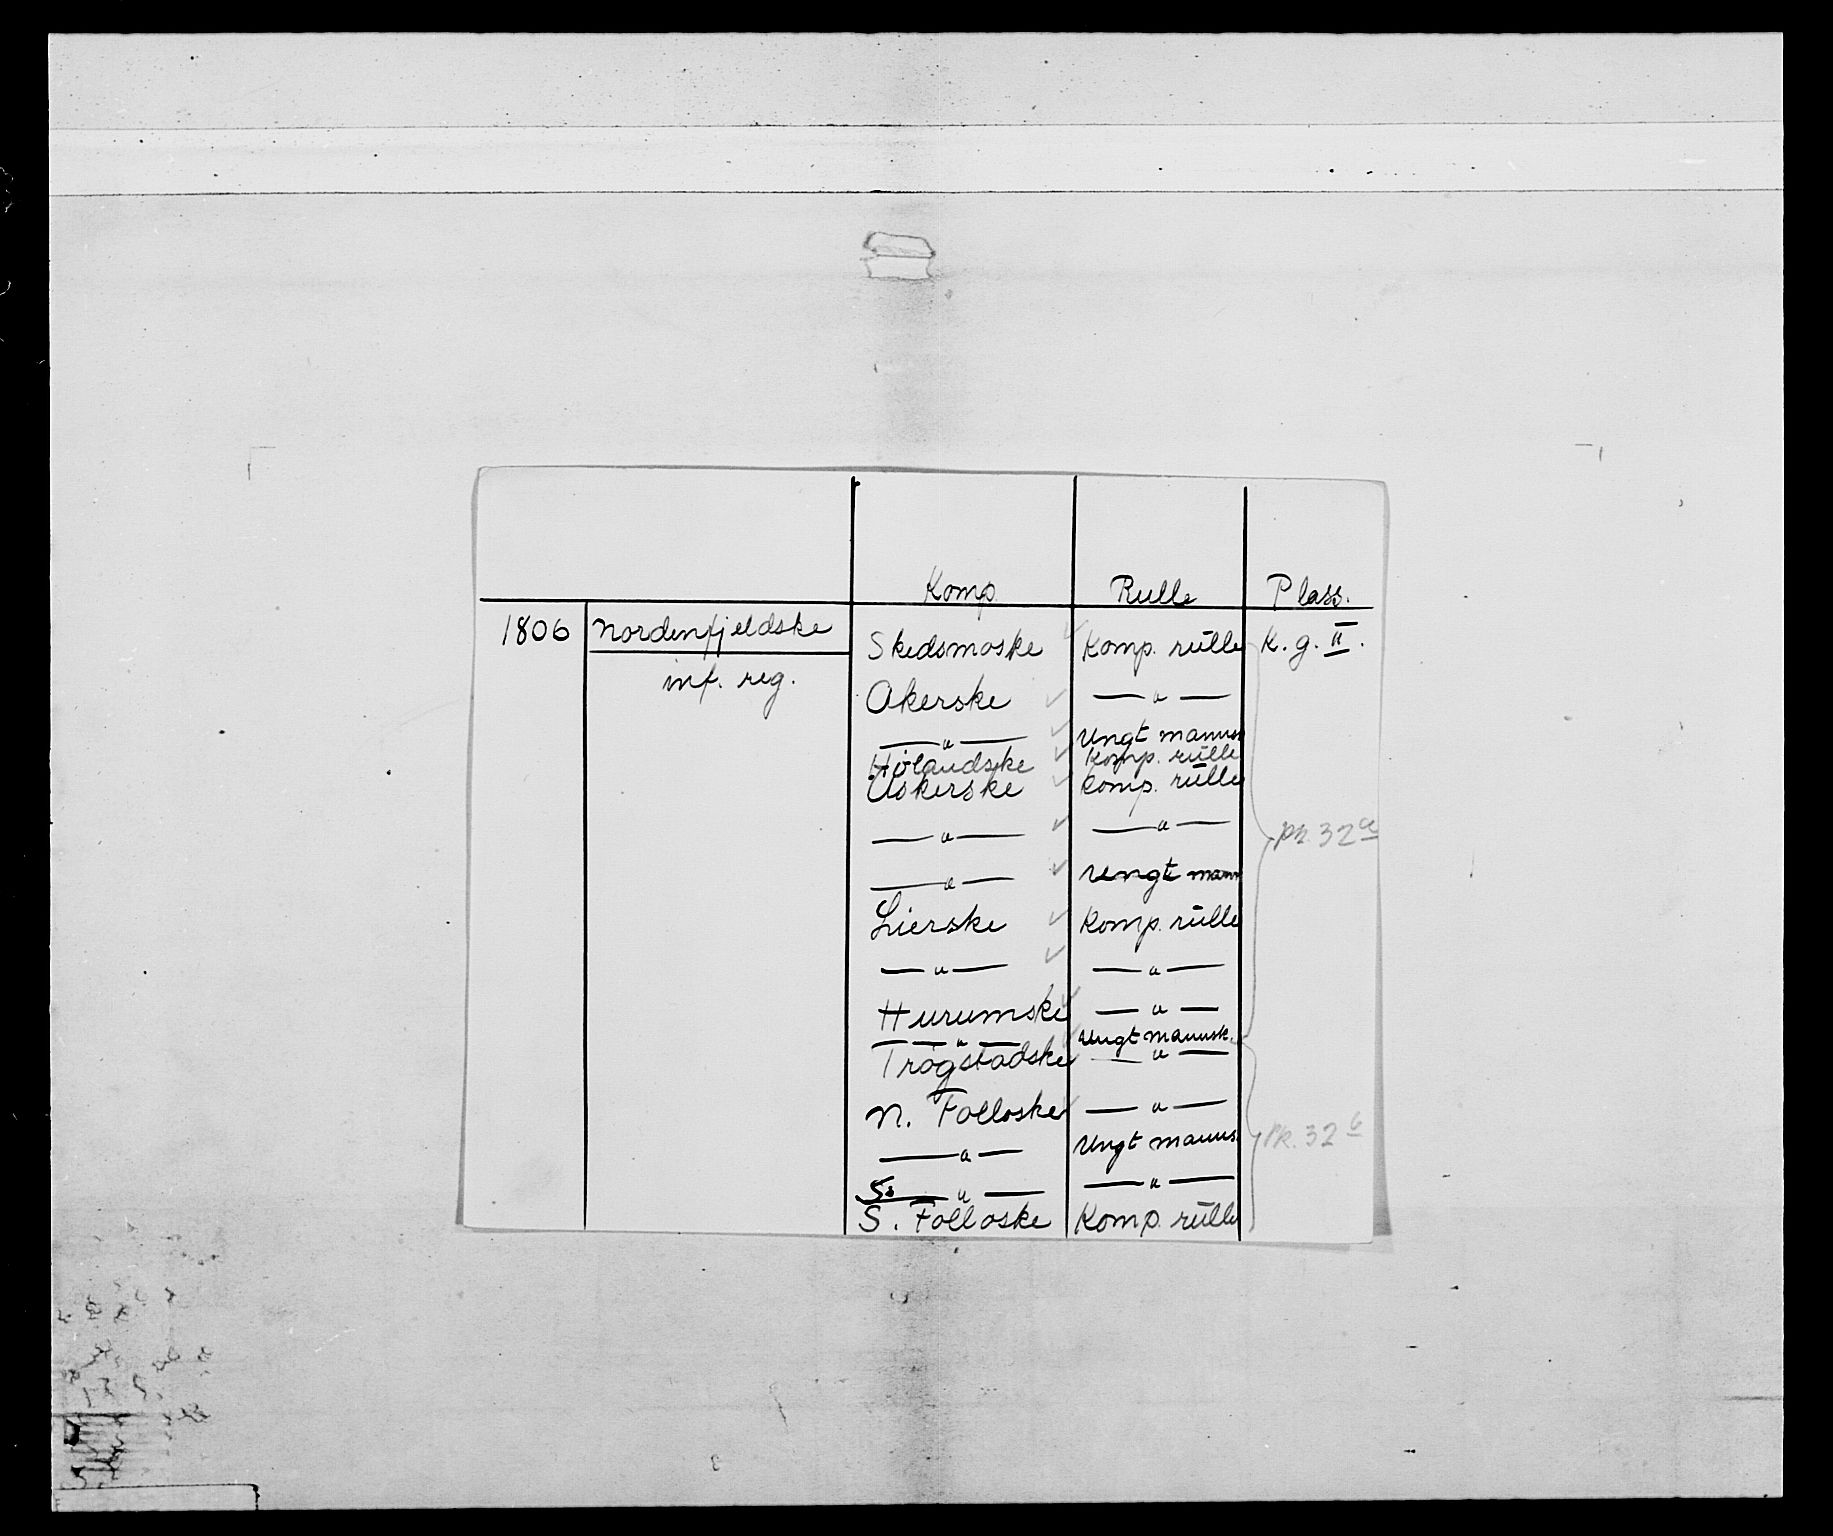 Komp. Rulle Plass.
1806 Nordenfjeldske Skedsmoske Komp. rulle K. g. II.
inf. reg.
Akerske — " —
— " — Ungt mannsk
Hølandske Komp. rulle
Askerske Komp. rulle
— " — — " — pk. 32 a
— " — Ungt mann
Lierske Komp. rulle
— " — — " —
Hurumske — " —
— " — Ungt mannsk.
Trøgstadske — " —
N. Folloske — " —
— " — Ungt manns. Pk. 32 b
S. — " — — " —
S. Folloske Komp. rulle